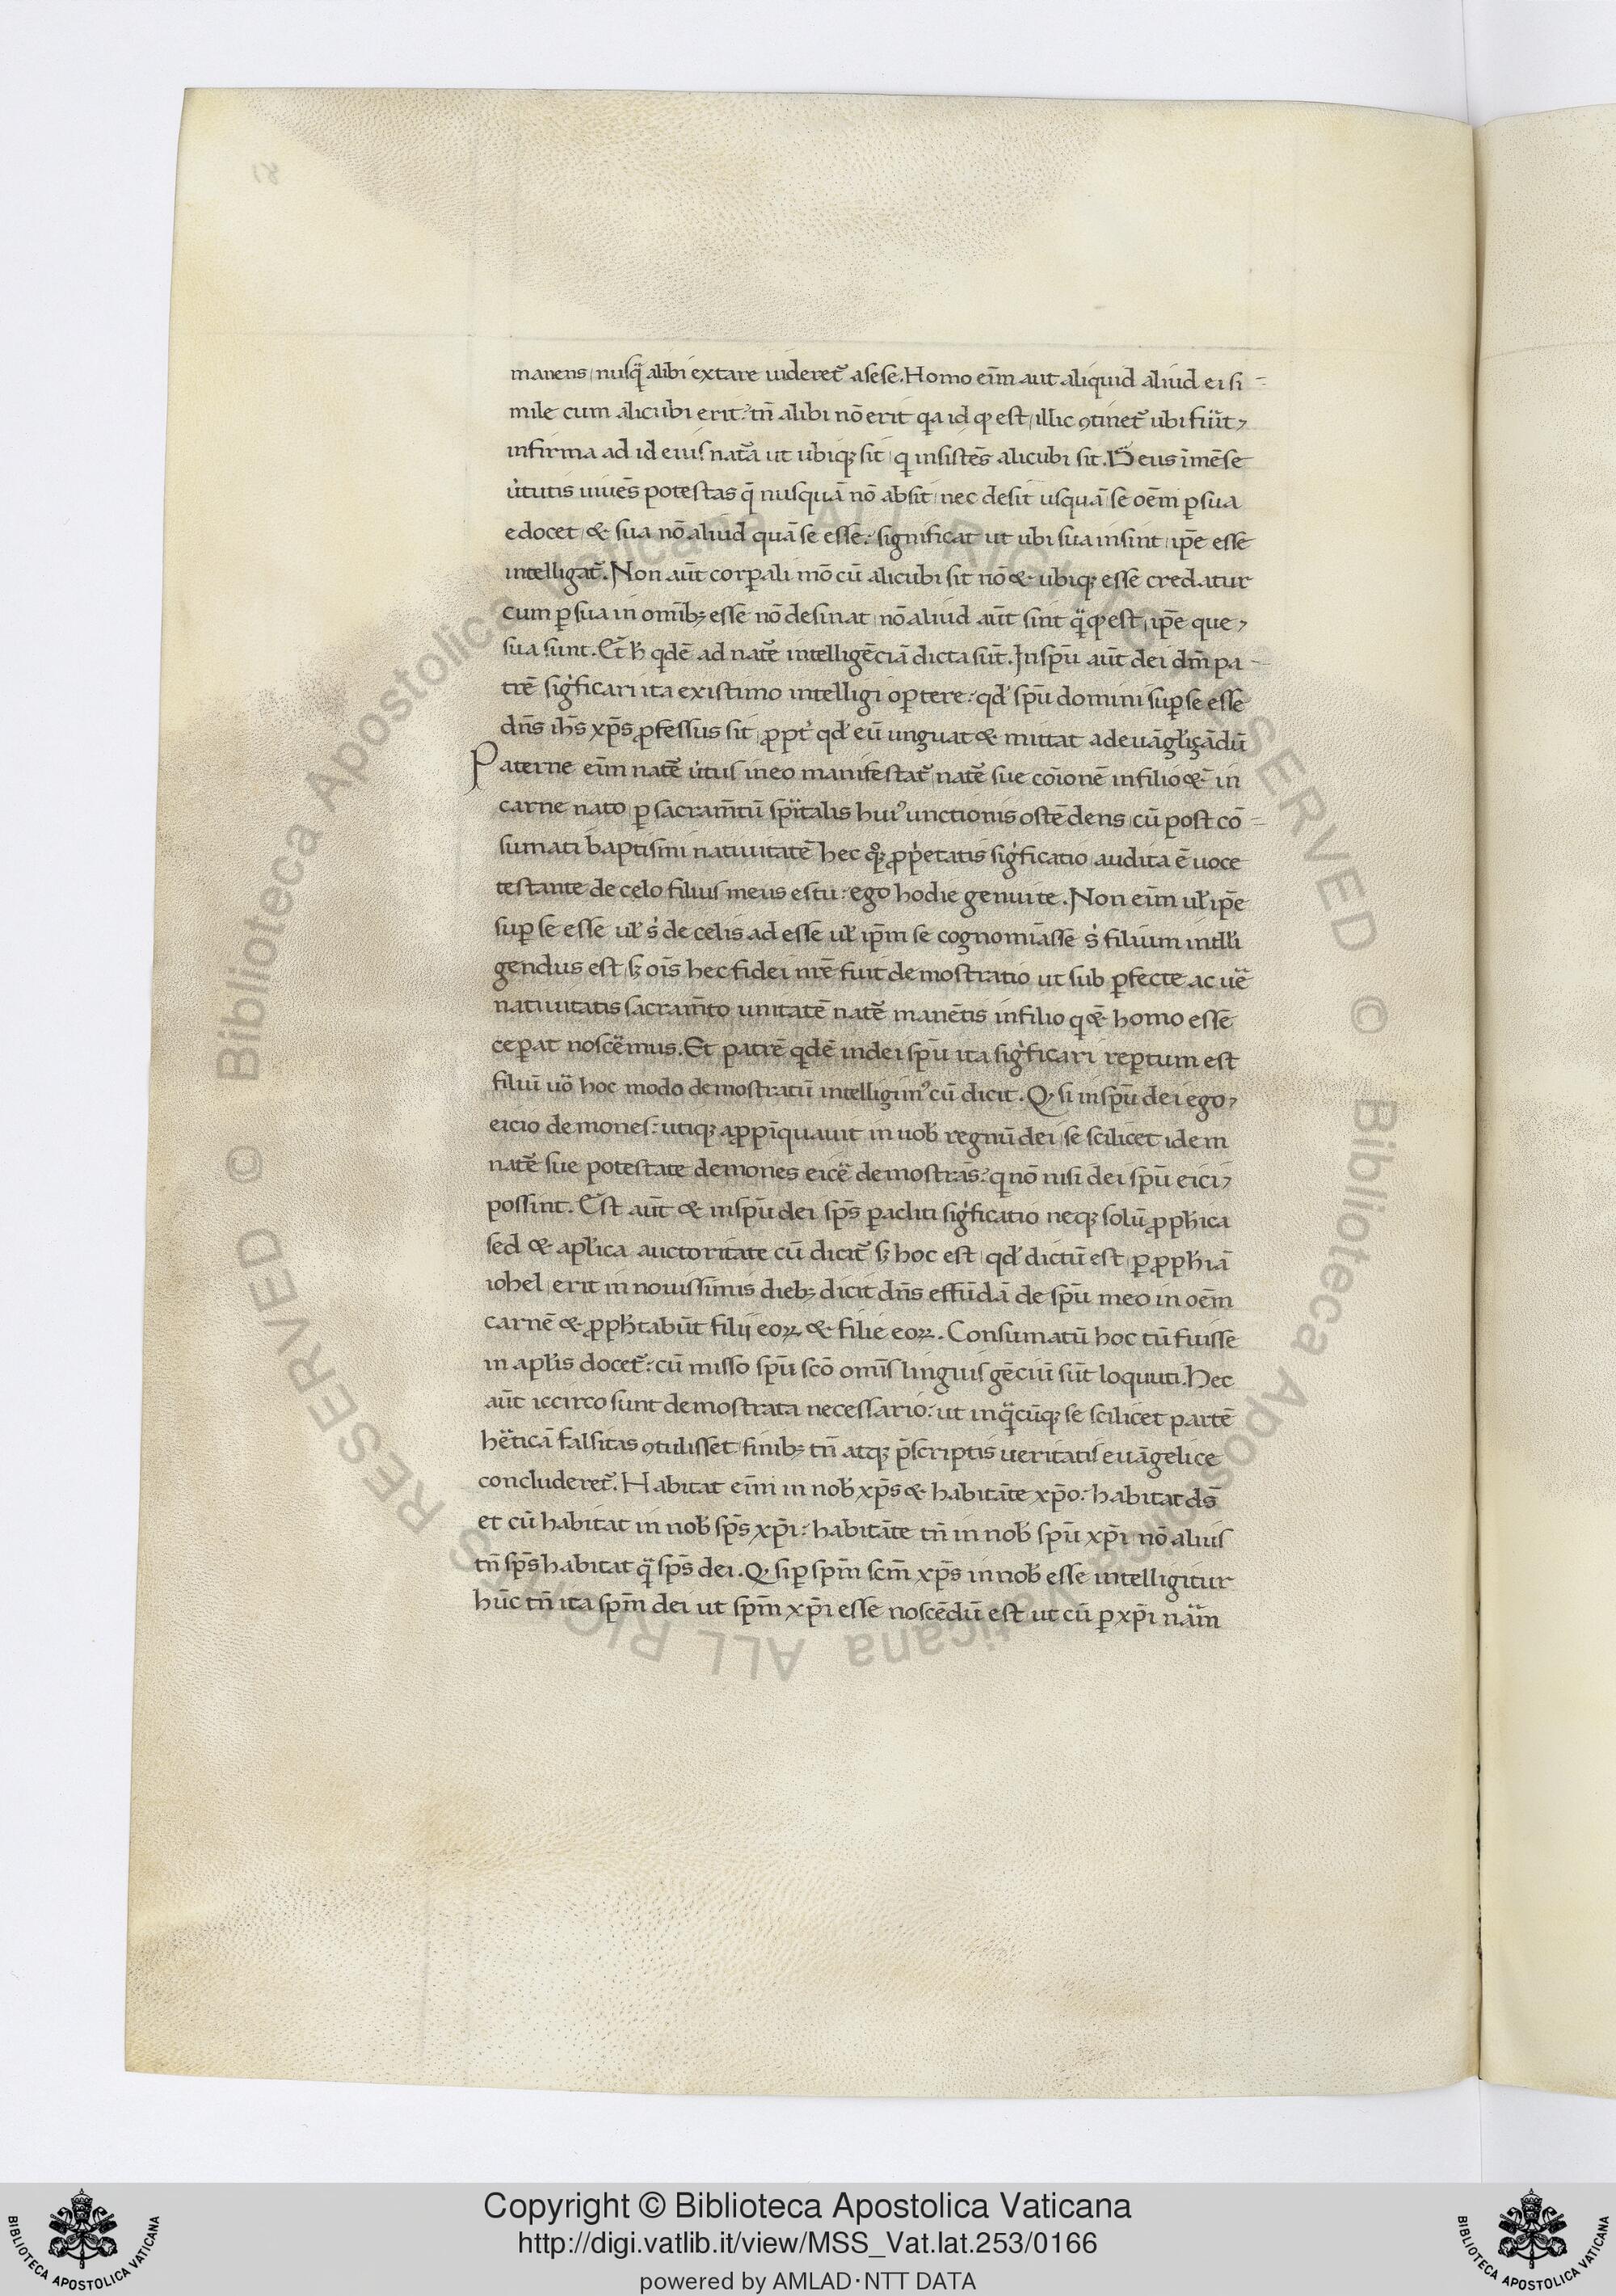 manens nusq̃ alibi extare uideret᷑ a sese. Homo eim̄ aut aliquid aliud ei si-
mile cum alicubi erit: tn̄ alibi nō erit qa id qd est illic ꝯtinet᷑ ubi fuīt
infirma ad id eius nat᷑a ut ubiqꝫ sit qi insistēs alicubi sit. Deus īmēse
u̇tutis uiuēs potestas q̄ nusquā nō absit nec desit usquā se oēm ꝑ sua
edocet & sua nō aliud quā se esse: significat ut ubi sua insint ip̄e esse
intelligat᷑. Non aūt corꝑali mō cū alicubi sit nō & ubiqꝫ esse credatur
cum ꝑ sua in omībꝫ esse nō desinat nō aliud aūt sint q̃ qd est ip̄e que
sua sunt. Et h̄ qdē ad nat᷑e intelligēciā dicta sūt. In sp̄u aūt dei dm̄ pa-
trē sigi̇ficari ita existimo intelligi oꝑtere: qd̓ sp̄u domini suꝑ se esse
dn̄s ih̄s xp̄s ꝓfessus sit ꝓpt̓ qd̓ eū unguat & mittat ad euāgl̓içādū
Paterne eim̄ nat᷑e u̇tus in eo manifestat᷑ nat᷑e sue cōionē in filio & in
carne nato ꝑ sacram̄tū sp̄italis huiꝰ unctionis ostēdens cū post cō-
sumati baptismi natiuitatē hec qꝫ ꝓpi̇etatis sigi̇ficatio audita ē uoce
testante de celo filius meus es tu: ego hodie genui te. Non eim̄ ul̓ ip̄e
suꝑ se esse ul̓ s̓ de celis adesse ul̓ ip̄m se cognomīasse s̓ filium intll̓i
gendus est sꝫ oīs hec fidei nr̄e fuit demostratio ut sub ꝑfecte ac ue᷑
natiuitatis sacram̄to unitatē nat᷑e manētis in filio q & homo esse
ceꝑat nosce᷑mus. Et patrē qdē in dei sp̄u ita sigi̇ficari reꝑtum est
filiū uo᷑ hoc modo demostratū intelligimꝰ cū dicit. Qd si in sp̄u dei ego
eicio demones: utiqꝫ apꝓpīquauit in uob̓ regnū dei se scilicet idem
nat᷑e sue potestate demones eice᷑ demostrās: q nō nisi dei sp̄u eici
possint. Est aūt & in sp̄u dei sp̄s ꝑacliti sigi̇ficatio neqꝫ solū ꝓph̓ica
sed & apl̓ica auctoritate cū dicit᷑ sꝫ hoc est qd̓ dictū est ꝑ ꝓph̓iā
iohel erit in nouissimis diebꝫ dicit dn̄s effūdā de sp̄u meo in oēm
carnē & ꝓph̓tabūt filij eoꝝ & filie eoꝝ. Consumatū hoc tū fuisse
in apl̓is docet᷑: cū misso sp̄u scō omīs linguis gēciū sūt loquuti. Hec
aūt iccirco sunt demostrata necessario: ut in q̃cūqꝫ se scilicet partē
he᷑ticā falsitas ꝯtulisset finibꝫ tn̄ atqꝫ p̄scriptis ueritatis euāgelice
concluderet᷑. Habitat eim̄ in nob̓ xp̄s & habitāte xp̄o: habitat ds̄
et cū habitat in nob̓ sp̄s xp̄i: habitāte tn̄ in nob̓ sp̄u xp̄i nō alius
tn̄ sp̄s habitat q̃ sp̄s dei. Qd si ꝑ sp̄m scm̄ xp̄s in nob̓ esse intelligitur
hūc tn̄ ita sp̄m dei ut sp̄m xp̄i esse noscēdū est ut cū ꝑ xp̄i na᷑m
© Biblioteca Apostolica Vaticana ALL RIGHTS RESERVED © Biblioteca Apostolica Vaticana ALL RIGHTS RESERVED
Copyright © Biblioteca Apostolica Vaticana
http://digi.vatlib.it/view/MSS_Vat.lat.253/0166
powered by AMLAD·NTT DATA
BIBLIOTECA APOSTOLICA VATICANA
BIBLIOTECA APOSTOLICA VATICANA